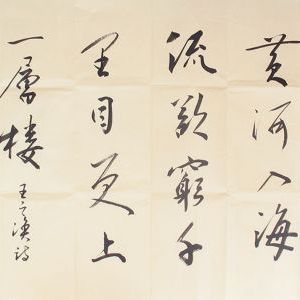 黄河入海
流欲窮千
里目更上
一層楼
王之渙詩